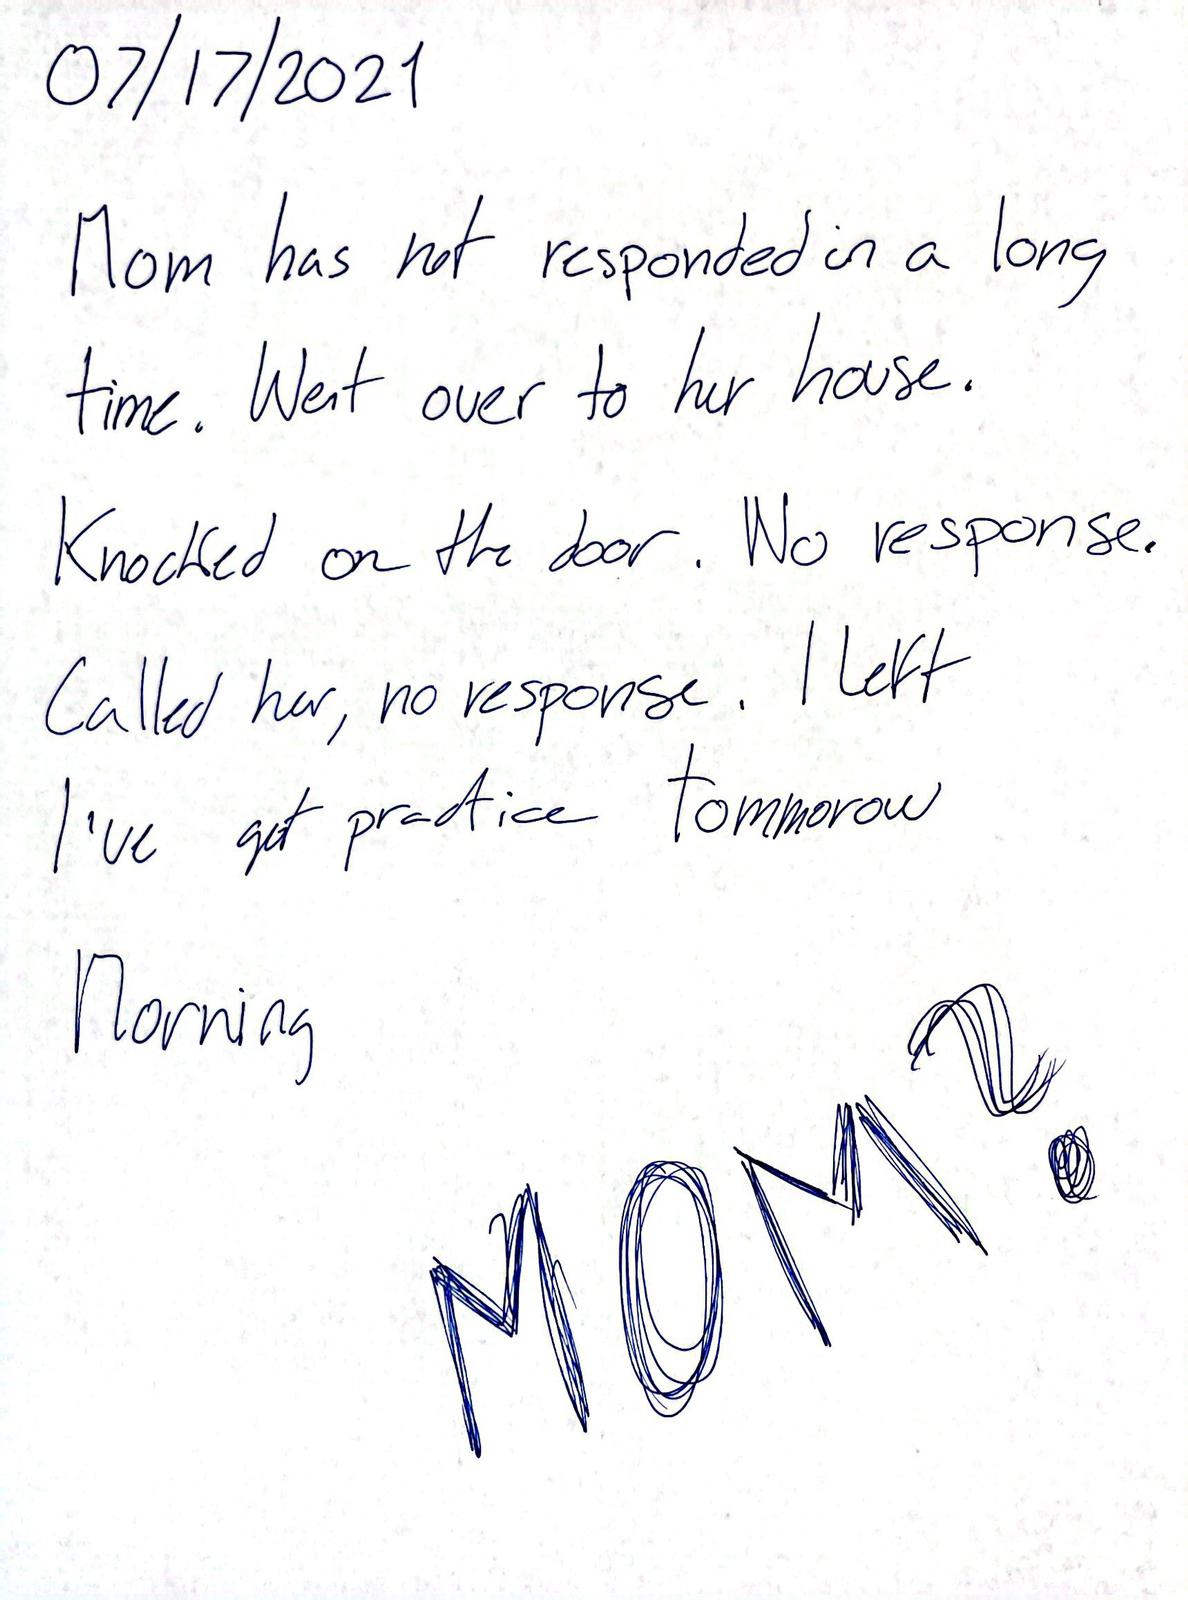 07/17/2021
Mom has not responded in a long
time. Went over to her house.
Knocked on the door. No response.
Called her, no response. I left
I've got practice tommorow
Morning
MOM?